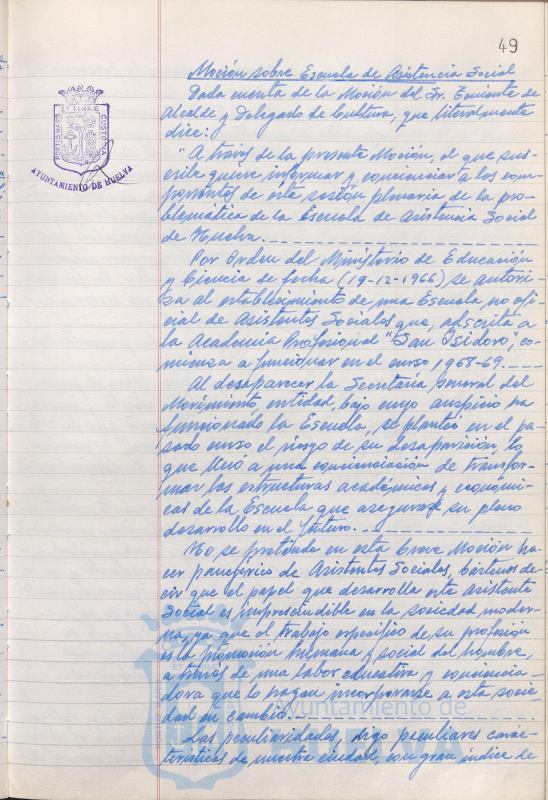 49
Moción sobre Escuela de Asistencia Social
Dada cuenta de la Moción del Sr. Teniente de
Alcalde y Delegado de Cultura, que literalmente
dice:
"A través de la presente Moción, el que sus-
cribe quiere informar y concienciar a los com-
ponentes de esta sesión plenaria de la pro-
blemática de la Escuela de Asistencia Social
de Huelva.
Por Orden del Ministerio de Educación
y Ciencia de fecha (19-12-1966) se autori-
za al establecimiento de una Escuela no ofi-
cial de Asistentes Sociales que, adscrita a
la Academia Profesional "San Isidoro", co-
mienza a funcionar en el curso 1968-69.
Al desaparecer la Secretaría General del
Movimiento, entidad, bajo cuyo auspicio ha
funcionado la Escuela, se planteó en el pa-
sado curso el riesgo de su desaparición, lo
que llevó a una concienciación de transfor-
mar las estructuras académicas y económi-
cas de la Escuela que asegurase su pleno
desarrollo en el futuro.
No se pretende en esta breve Moción ha-
cer panegírico de Asistentes Sociales, bástenos de-
cir que el papel que desarrolla este Asistente
Social es imprescindible en la sociedad moder-
na, ya que el trabajo específico de su profesión
es la promoción humana y social del hombre,
a través de una labor educativa y conciencia-
dora que lo hagan incorporarse a esta socie-
dad en cambio.
Las peculiaridades, digo peculiares carac-
terísticas de nuestra ciudad, con gran índice de
PORTUS MARIS
ET TERRAE
CUSTODIA
AYUNTAMIENTO DE HUELVA
Ayuntamiento de
HUELVA